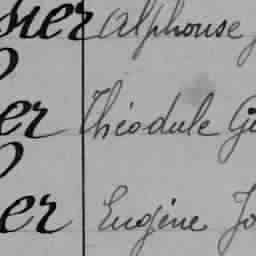 sier Alphonse
er Théodule
er Eugène